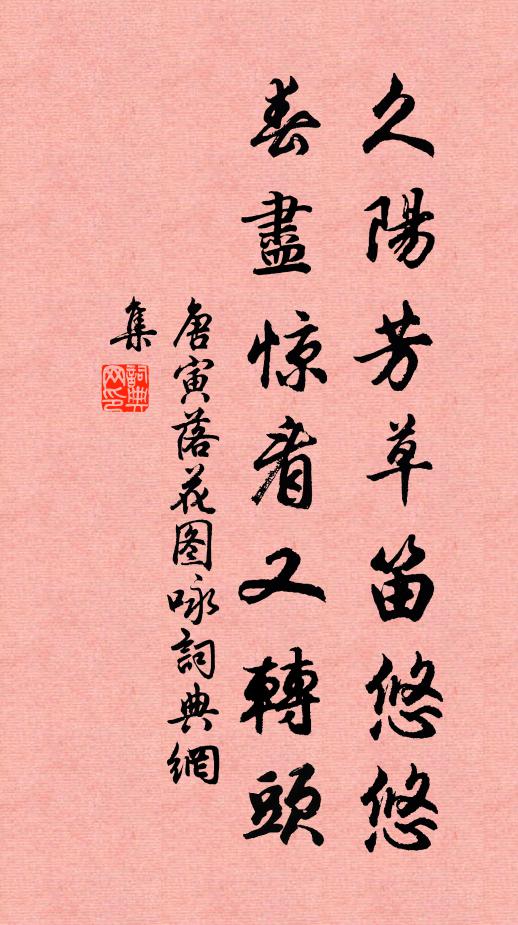 久陽芳草笛悠悠
春盡惊看又轉頭
唐寅落花图咏詞典網
集
詞典网印